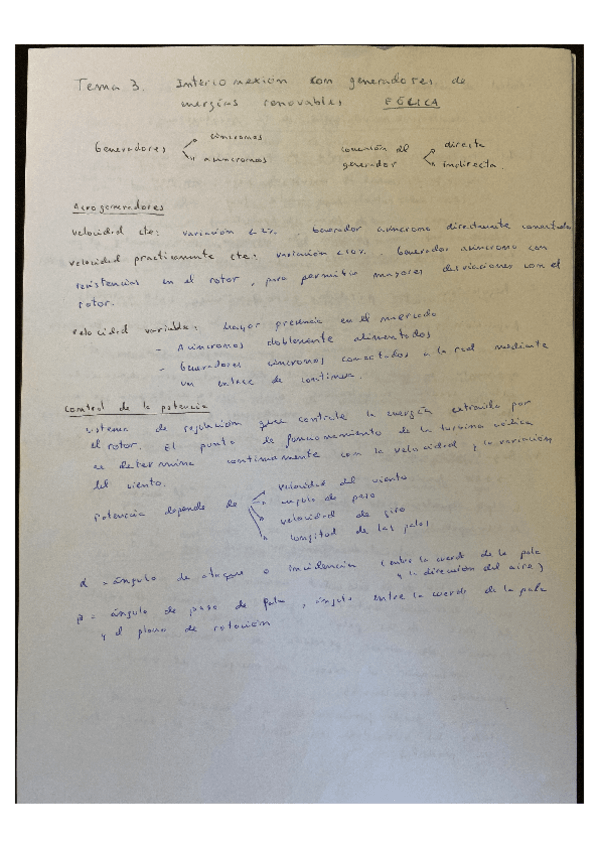 Tema 3. Interconexión con generadores de
energías renovables EÓLICA
Generadores síncronos
asíncronos
conexión del generador directa
indirecta
Aerogeneradores
velocidad cte: variación <2%. Generador asíncrono directamente conectado
velocidad prácticamente cte: variación <10%. Generador asíncrono con
resistencias en el rotor, pero permitido mayores desviaciones con el
rotor.
velocidad variable: mayor presencia en el mercado
- Asíncronos doblemente alimentados
- Generadores síncronos conectados a la red mediante
un enlace de continua.
Control de la potencia
sistema de regulación que controle la energía extraída por
el rotor. El punto de funcionamiento de la turbina eólica
se determina continuamente con la velocidad y la variación
del viento.
Potencia depende de velocidad del viento
ángulo de paso
velocidad de giro
longitud de las palas
α = ángulo de ataque o incidencia (entre la cuerda de la pala
y la dirección del aire)
β = ángulo de paso de pala, ángulo entre la cuerda de la pala
y el plano de rotación